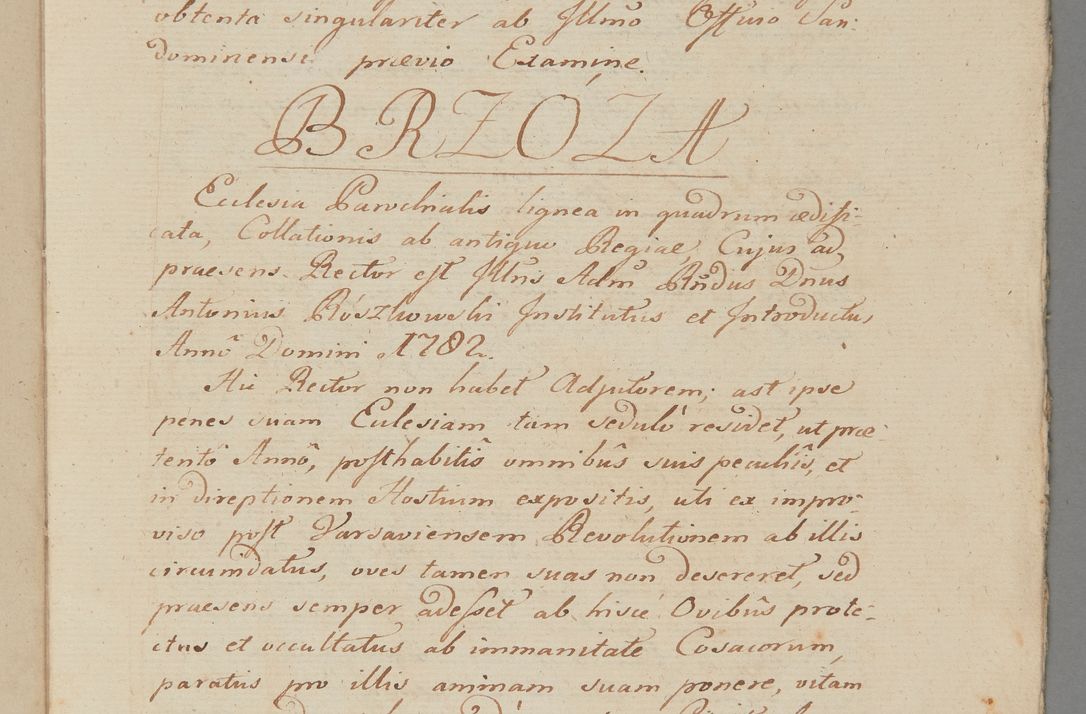 obtenta singulariter ab Illmo Offivo San-
dominensi prævio Examine.
BRZÓZA
Ecclesia Parochialis lignea in quadrum ædifi-
cata, Collationis ab antiquo Regiae, Cujus ad
praesens Rector est Illris Adm Rndus Dnus
Antonius Rószkowski Institutus et Introductus
Annô Domini 1782.
Hic Rector non habet Adjutorem; ast ipse
penes suam Ecclesiam tam sedulò residet, ut præ-
tentô Annô, posthabitîs omnibûs suis peculiîs, et
in direptionem Hostium expositis, uti ex impro-
viso post Varsaviensem Revolutionem ab illis
circumdatus, oves tamen suas non desereret, sed
praesens semper adesset ab hisce Ovibûs prote-
ctus et occultatus ab immanitate Cosacorum,
paratus pro illis animam suam ponere, vitam